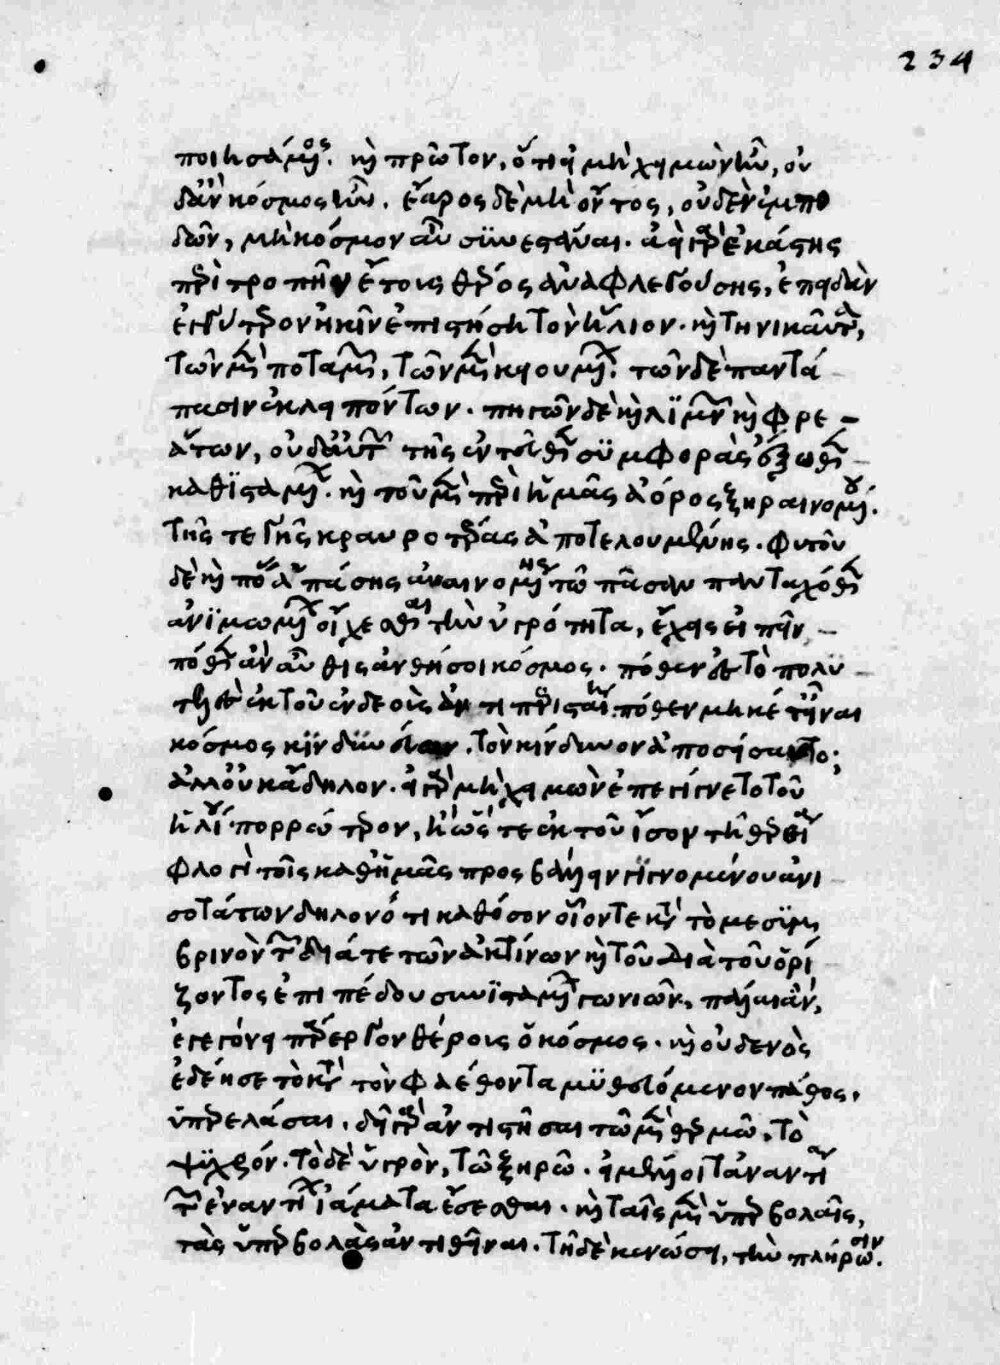 234
ποιησάμενος. καὶ πρῶτον, ὅτι εἰ μὴ χειμὼν ἦν, οὐ
δ' ἂν κόσμος ἦν. ἔαρος δὲ μὴ ὄντος, οὐδὲν ἐμπο
δὼν, μὴ κόσμον αὖ συνεστάναι. ἀεὶ γὰρ ἑκάστης
περιτροπὴν ἔτους θέρος ἀναφλεγούσης, ἐπειδὰν
ἐγγύτερον ἥκειν ἐπιστήσῃ τὸν ἥλιον. καὶ τηνικαῦτα,
τῶν μὲν ποταμῶν, τῶν μὲν τῶν δὲ παντά
πασιν ἐκλειπόντων. πηγῶν δὲ καὶ λιμνῶν καὶ φρε
άτων, οὐδ' αὐτῶν τῆς ἐντεῦθεν συμφορᾶς ἔξωθεν
καθισταμένων. καὶ τοῦ μὲν περὶ ἡμᾶς ἀέρος ξηραινομένου.
τῆς τε γῆς κραυροτέρας ἀποτελουμένης. φυτοῦ
δὲ καὶ πόας ἁπάσης τῷ πᾶσαν πανταχόθεν
ἀνιμωμένων οἴχεσθαι τὴν ὑγρότητα, ἔχεις εἰπεῖν
πόθεν ἂν αὖθις ἀνθήσοι κόσμος. πόθεν δὲ τὸ πολὺ
ἐκ τοῦ ἐνδεοῦς ἄν τι περιέσται. πόθεν μηκέτ' εἶναι
κόσμος κινδυνεύων. τὸν κίνδυνον ἀποσείσαιτο;
ἀλλ' οὐκ ἄδηλον. εἰ γὰρ μὴ χειμὼν ἐπεγίγνετο τοῦ
ἡλίου πορρώτερον, ἢ ὥστε ἐκ τοῦ ἴσου τῇ θερείᾳ
φλογὶ τοῖς καθ' ἡμᾶς προσβάλλειν γιγνομένου ἀνι
σοτάτων δηλονότι καθόσον οἷόν τε κατὰ τὸ μεσημ
βρινὸν τῶν διά τε τῶν ἀκτίνων καὶ τοῦ διὰ τοῦ ὁρί
ζοντος ἐπιπέδου συνισταμένων γωνιῶν, πάλαι ἂν,
ἐγεγόνει πάρεργον θέρους ὁ κόσμος. καὶ οὐδενὸς
ἐδέησε τὸ κατὰ τὸν φαέθοντα μυθευόμενον πάθος,
ὑπερελάσαι. δεῖ γὰρ ἀντιστῆσαι τῷ μὲν θερμῷ, τὸ
ψυχρόν. τὸ δὲ ὑγρὸν, τῷ ξηρῷ. εἰ μέλλοι τἀναντία
τῶν ἐναντίων ἰάματα ἔσεσθαι. καὶ ταῖς μὲν ὑπερβολαῖς,
τὰς ὑπερβολὰς ἀντιθεῖναι. τῇ δὲ κενώσει, τὴν πλήρωσιν.